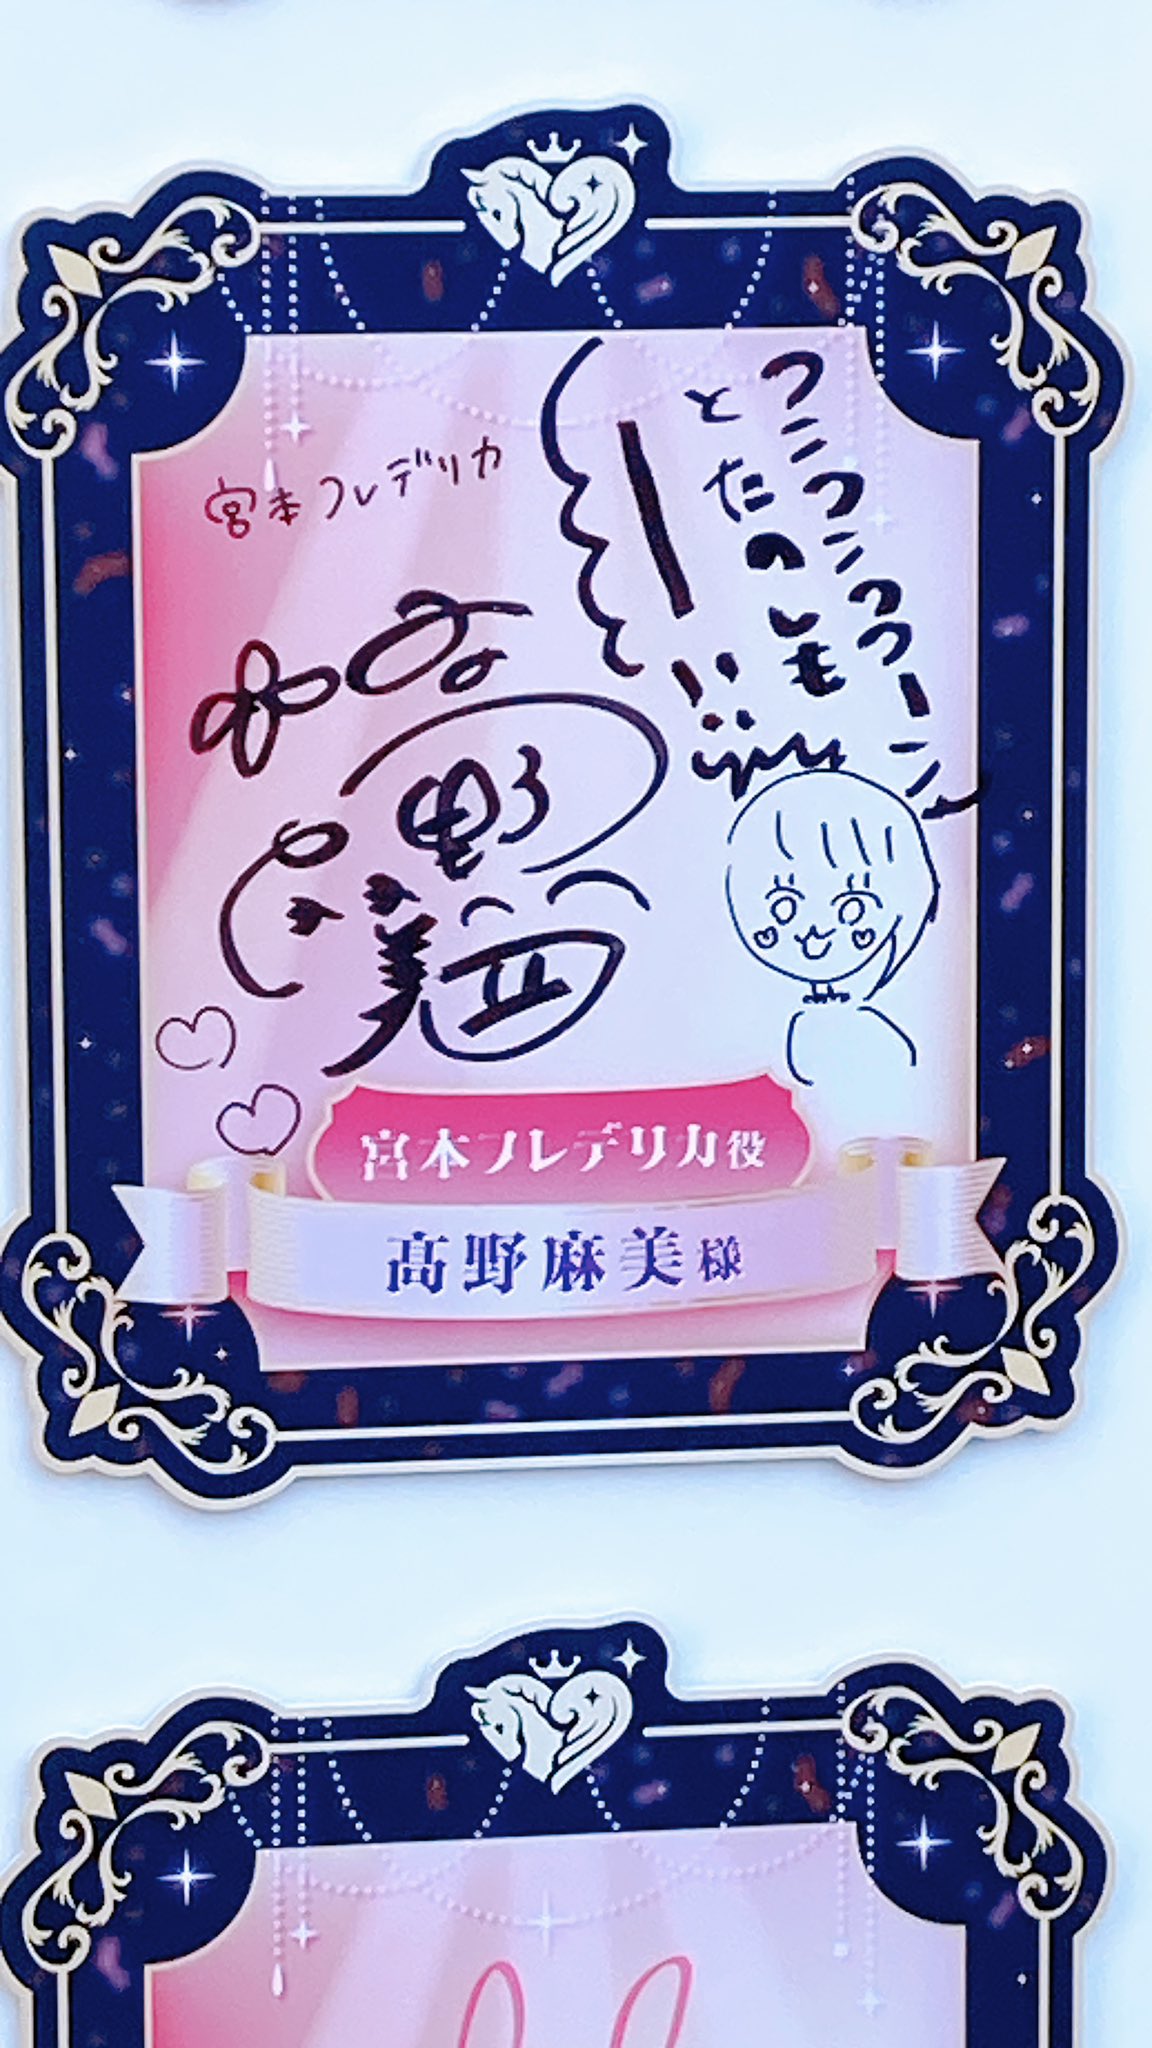 宮本フレデリカ
フンフンフフーン
とたのしもー!!
宮本フレデリカ役
高野麻美様